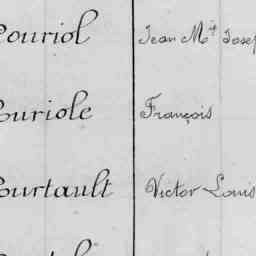 Pouriol Jean Mie Josep
Pouriole François
Pourtault Victor Louis